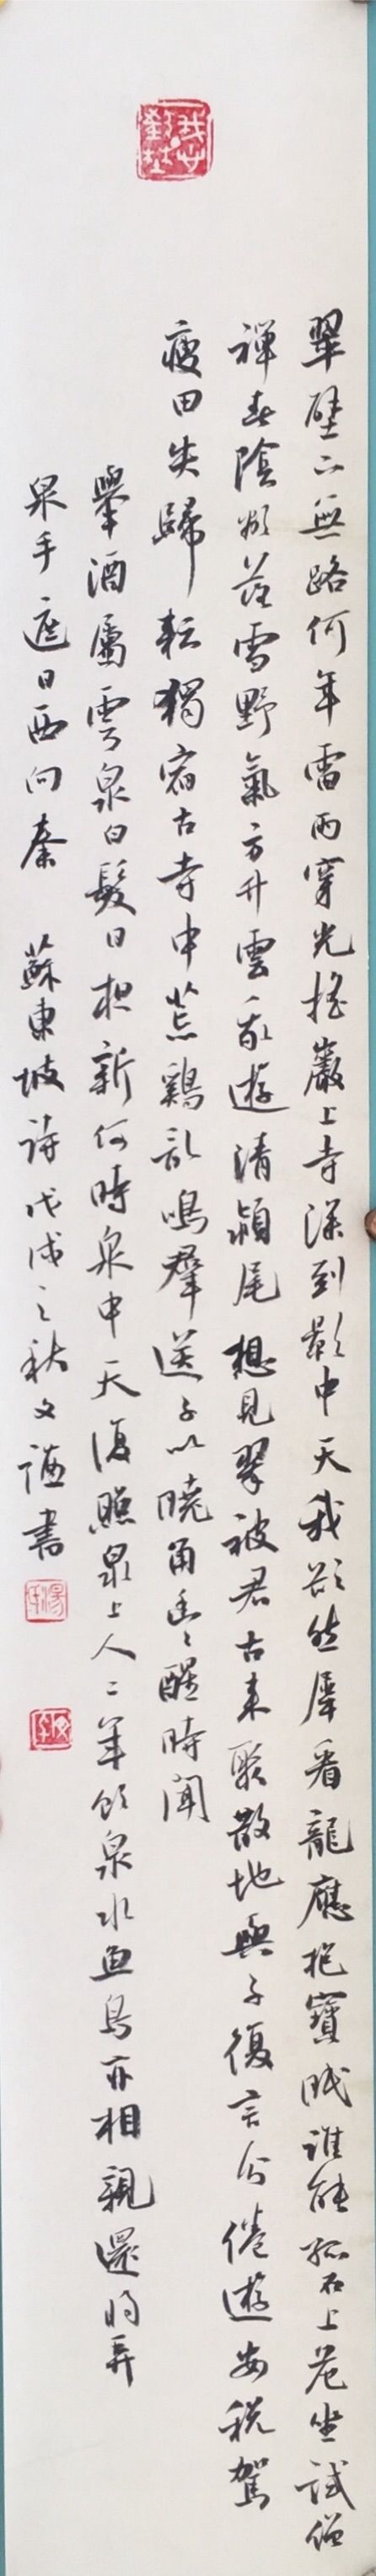 翠壁下無路何年雷雨穿光搖巖上寺深到影中天我欲然犀看龍應抱寶眠誰能孤石上危坐試僧
禪春陰欲落雪野氣方升雲我遊清潁尾想見翠被君古來聚散地與子復言分倦遊安稅駕
瘦田失歸耘獨宿古寺中荒鷄亂鳴羣送子以曉角幽々醒時聞
舉酒屬雲泉白髮日新何時泉中天復照泉上人二年飲泉水魚鳥亦相親還將弄
泉手遮日西向秦 蘇東坡詩戊戌之秋文書